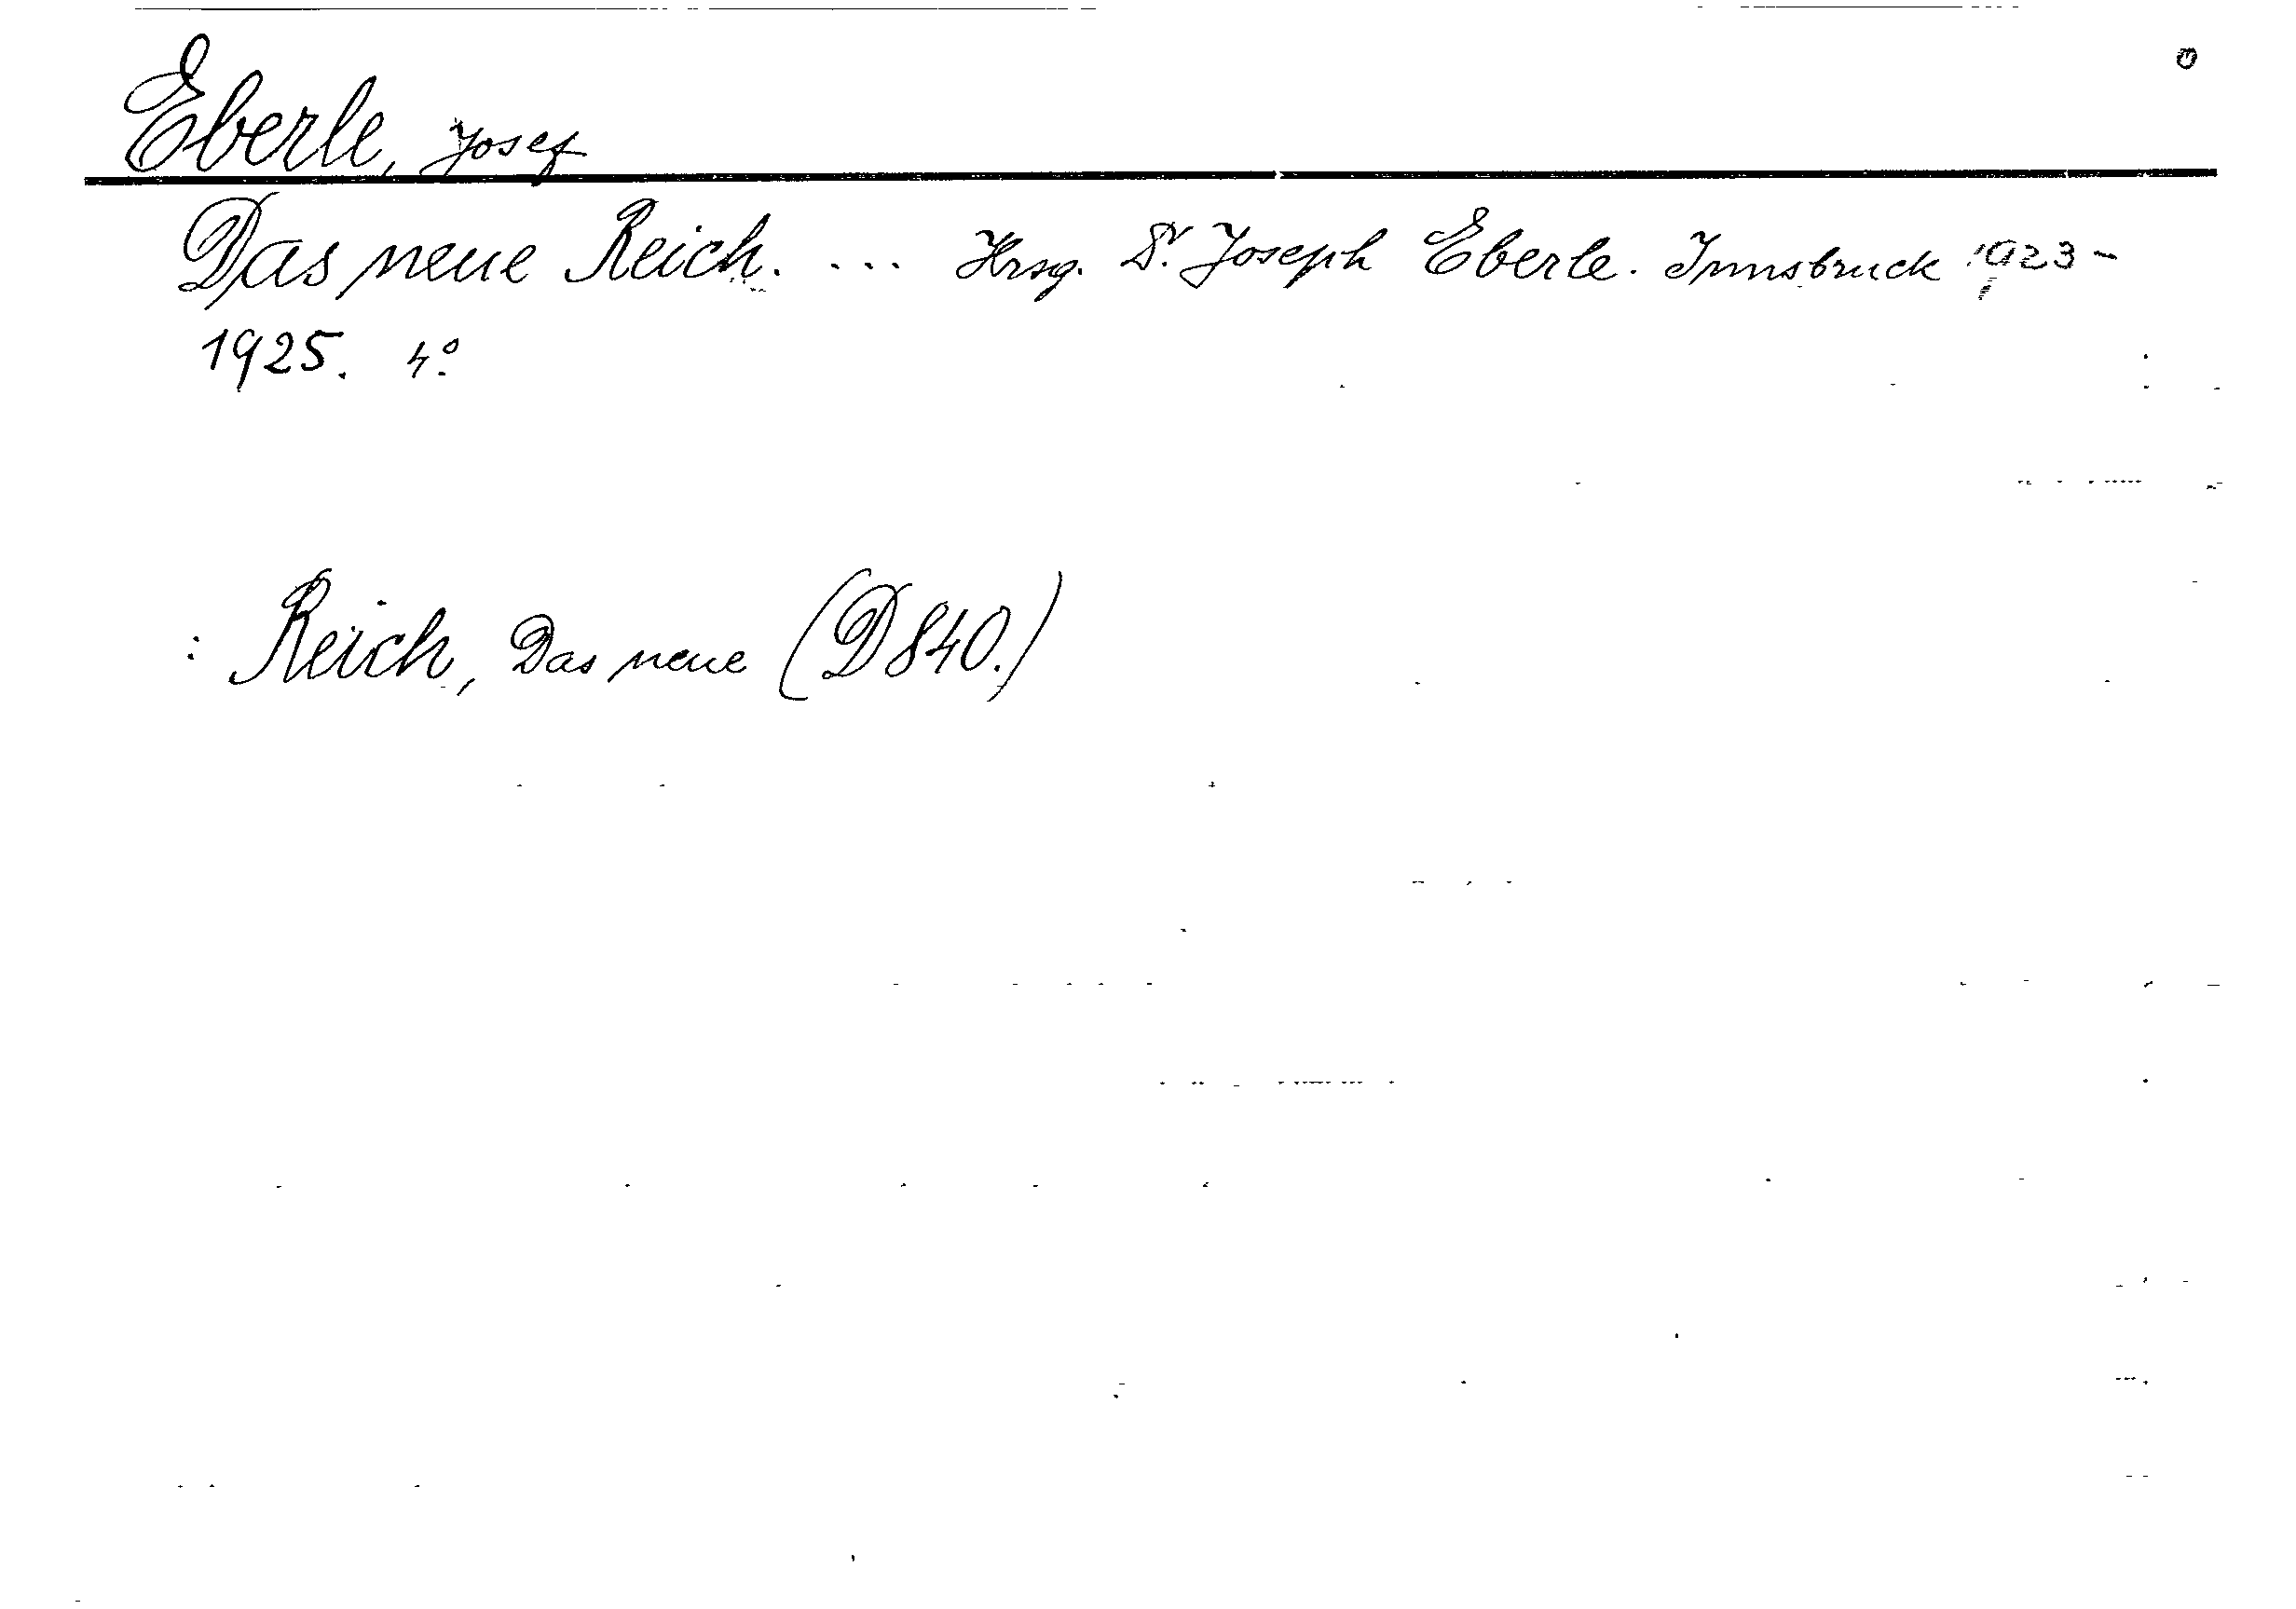 Eberle, Josef
Das neue Reich. ... Hrsg. Dr. Joseph Eberle. Innsbruck 1923-
1925. 4°.
: Reich, Das neue (D840.)